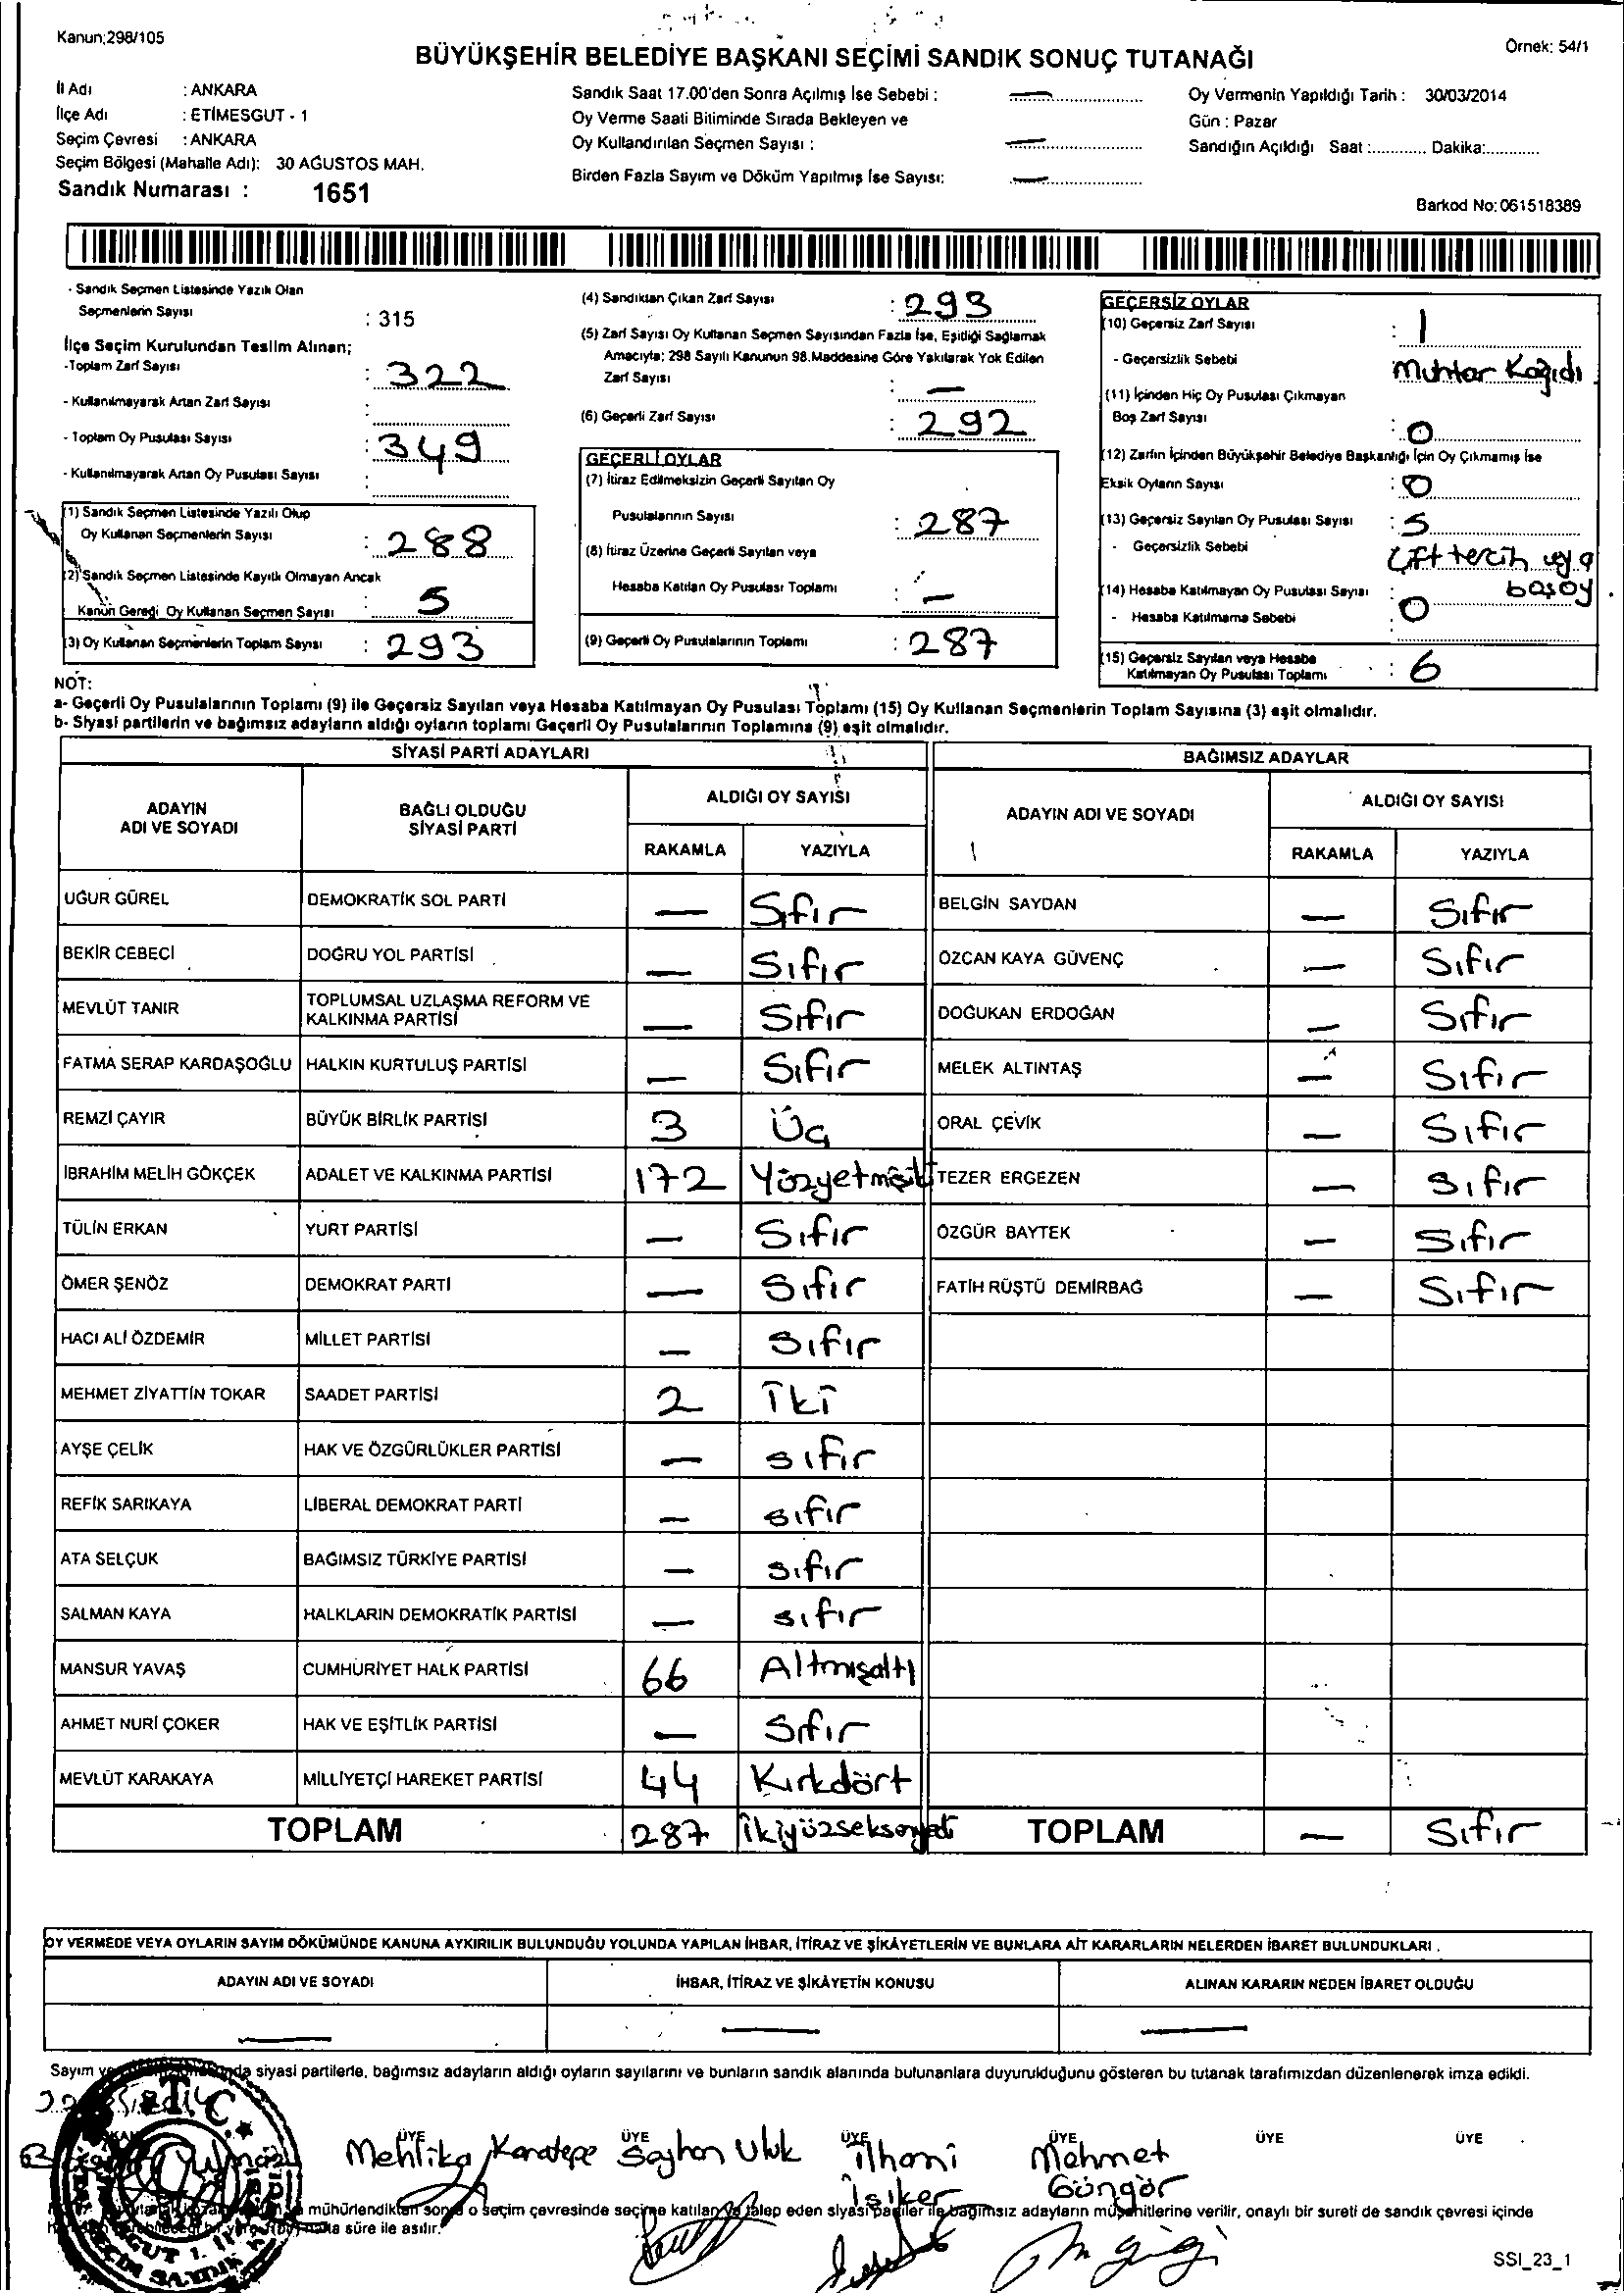 Kanun;298/105
Örnek: 54/1
BÜYÜKŞEHİR BELEDİYE BAŞKANI SEÇİMİ SANDIK SONUÇ TUTANAĞI
İl Adı : ANKARA
İlçe Adı : ETİMESGUT - 1
Seçim Çevresi : ANKARA
Seçim Bölgesi (Mahalle Adı): 30 AĞUSTOS MAH.
Sandık Numarası : 1651
Sandık Saat 17.00'den Sonra Açılmış İse Sebebi : —
Oy Verme Saati Bitiminde Sırada Bekleyen ve
Oy Kullandırılan Seçmen Sayısı : —
Birden Fazla Sayım ve Döküm Yapılmış İse Sayısı: —
Oy Vermenin Yapıldığı Tarih : 30/03/2014
Gün : Pazar
Sandığın Açıldığı Saat :............ Dakika:............
Barkod No: 061518389
- Sandık Seçmen Listesinde Yazılı Olan
Seçmenlerin Sayısı : 315
İlçe Seçim Kurulundan Teslim Alınan;
-Toplam Zarf Sayısı : 322
- Kullanılmayarak Artan Zarf Sayısı :
- Toplam Oy Pusulası Sayısı : 349
- Kullanılmayarak Artan Oy Pusulası Sayısı :
(1) Sandık Seçmen Listesinde Yazılı Olup
Oy Kullanan Seçmenlerin Sayısı : 288
(2) Sandık Seçmen Listesinde Kayıtlı Olmayan Ancak
Kanun Gereği Oy Kullanan Seçmen Sayısı : 5
(3) Oy Kullanan Seçmenlerin Toplam Sayısı : 293
(4) Sandıktan Çıkan Zarf Sayısı : 293
(5) Zarf Sayısı Oy Kullanan Seçmen Sayısından Fazla İse, Eşitliği Sağlamak
Amacıyla; 298 Sayılı Kanunun 98.Maddesine Göre Yakılarak Yok Edilen
Zarf Sayısı : —
(6) Geçerli Zarf Sayısı : 292
GEÇERLİ OYLAR
(7) İtiraz Edilmeksizin Geçerli Sayılan Oy
Pusulalarının Sayısı : 287
(8) İtiraz Üzerine Geçerli Sayılan veya
Hesaba Katılan Oy Pusulası Toplamı : —
(9) Geçerli Oy Pusulalarının Toplamı : 287
GEÇERSİZ OYLAR
(10) Geçersiz Zarf Sayısı : 1
- Geçersizlik Sebebi Muhtar Kağıdı
(11) İçinden Hiç Oy Pusulası Çıkmayan
Boş Zarf Sayısı : 0
(12) Zarfın İçinden Büyükşehir Belediye Başkanlığı İçin Oy Çıkmamış İse
Eksik Oyların Sayısı : 0
(13) Geçersiz Sayılan Oy Pusulası Sayısı : 5
- Geçersizlik Sebebi Çift tercih veya
boşoy
(14) Hesaba Katılmayan Oy Pusulası Sayısı : 0
- Hesaba Katılmama Sebebi :
(15) Geçersiz Sayılan veya Hesaba
Katılmayan Oy Pusulası Toplamı : 6
NOT:
a- Geçerli Oy Pusulalarının Toplamı (9) ile Geçersiz Sayılan veya Hesaba Katılmayan Oy Pusulası Toplamı (15) Oy Kullanan Seçmenlerin Toplam Sayısına (3) eşit olmalıdır.
b- Siyasi partilerin ve bağımsız adayların aldığı oyların toplamı Geçerli Oy Pusulalarının Toplamına (9) eşit olmalıdır.
SİYASİ PARTİ ADAYLARI BAĞIMSIZ ADAYLAR
ADAYIN ADI VE SOYADI BAĞLI OLDUĞU SİYASİ PARTİ ALDIĞI OY SAYISI ADAYIN ADI VE SOYADI ALDIĞI OY SAYISI
RAKAMLA YAZIYLA RAKAMLA YAZIYLA
UĞUR GÜREL DEMOKRATİK SOL PARTİ — Sıfır BELGİN SAYDAN — Sıfır
BEKİR CEBECİ DOĞRU YOL PARTİSİ — Sıfır ÖZCAN KAYA GÜVENÇ — Sıfır
MEVLÜT TANIR TOPLUMSAL UZLAŞMA REFORM VE KALKINMA PARTİSİ — Sıfır DOĞUKAN ERDOĞAN — Sıfır
FATMA SERAP KARDAŞOĞLU HALKIN KURTULUŞ PARTİSİ — Sıfır MELEK ALTINTAŞ — Sıfır
REMZİ ÇAYIR BÜYÜK BİRLİK PARTİSİ 3 Üç ORAL ÇEVİK — Sıfır
İBRAHİM MELİH GÖKÇEK ADALET VE KALKINMA PARTİSİ 172 Yüzyetmişiki TEZER ERGEZEN — Sıfır
TÜLİN ERKAN YURT PARTİSİ — Sıfır ÖZGÜR BAYTEK — Sıfır
ÖMER ŞENÖZ DEMOKRAT PARTİ — Sıfır FATİH RÜŞTÜ DEMİRBAĞ — Sıfır
HACI ALİ ÖZDEMİR MİLLET PARTİSİ — Sıfır
MEHMET ZİYATTİN TOKAR SAADET PARTİSİ 2 İki
AYŞE ÇELİK HAK VE ÖZGÜRLÜKLER PARTİSİ — sıfır
REFİK SARIKAYA LİBERAL DEMOKRAT PARTİ — sıfır
ATA SELÇUK BAĞIMSIZ TÜRKİYE PARTİSİ — sıfır
SALMAN KAYA HALKLARIN DEMOKRATİK PARTİSİ — sıfır
MANSUR YAVAŞ CUMHURİYET HALK PARTİSİ 66 Altmışaltı
AHMET NURİ ÇOKER HAK VE EŞİTLİK PARTİSİ — Sıfır
MEVLÜT KARAKAYA MİLLİYETÇİ HAREKET PARTİSİ 44 Kırkdört
TOPLAM 287 İkiyüzseksenyedi TOPLAM — Sıfır
OY VERMEDE VEYA OYLARIN SAYIM DÖKÜMÜNDE KANUNA AYKIRILIK BULUNDUĞU YOLUNDA YAPILAN İHBAR, İTİRAZ VE ŞİKÂYETLERİN VE BUNLARA AİT KARARLARIN NELERDEN İBARET BULUNDUKLARI .
ADAYIN ADI VE SOYADI İHBAR, İTİRAZ VE ŞİKÂYETİN KONUSU ALINAN KARARIN NEDEN İBARET OLDUĞU
— — —
Sayım siyasi partilerle, bağımsız adayların aldığı oyların sayılarını ve bunların sandık alanında bulunanlara duyurulduğunu gösteren bu tutanak tarafımızdan düzenlenerek imza edildi.
T.C.
ÜYE ÜYE ÜYE ÜYE ÜYE ÜYE
Mehlika Karatepe Seyhan Uluk İlhami Mehmet
İşiker Güngör
mühürlendikten sonra o seçim çevresinde seçime katılan ve talep eden siyasi partiler ile bağımsız adayların müşahitlerine verilir, onaylı bir sureti de sandık çevresi içinde
hafta süre ile asılır.
SSI_23_1